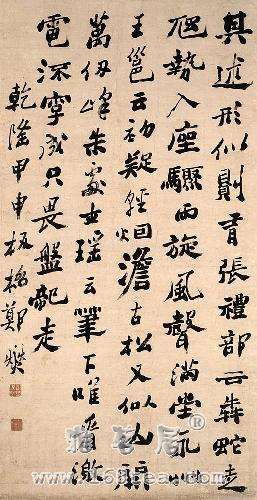 其述形似則有張禮部云奔蛇走
虺勢入座驟雨旋風聲滿堂
王邕云初疑輕烟澹古松又似山開
萬仞峰朱處士瑶云筆下唯看激
電流字成只畏盤龍走
乾隆甲申板橋鄭燮